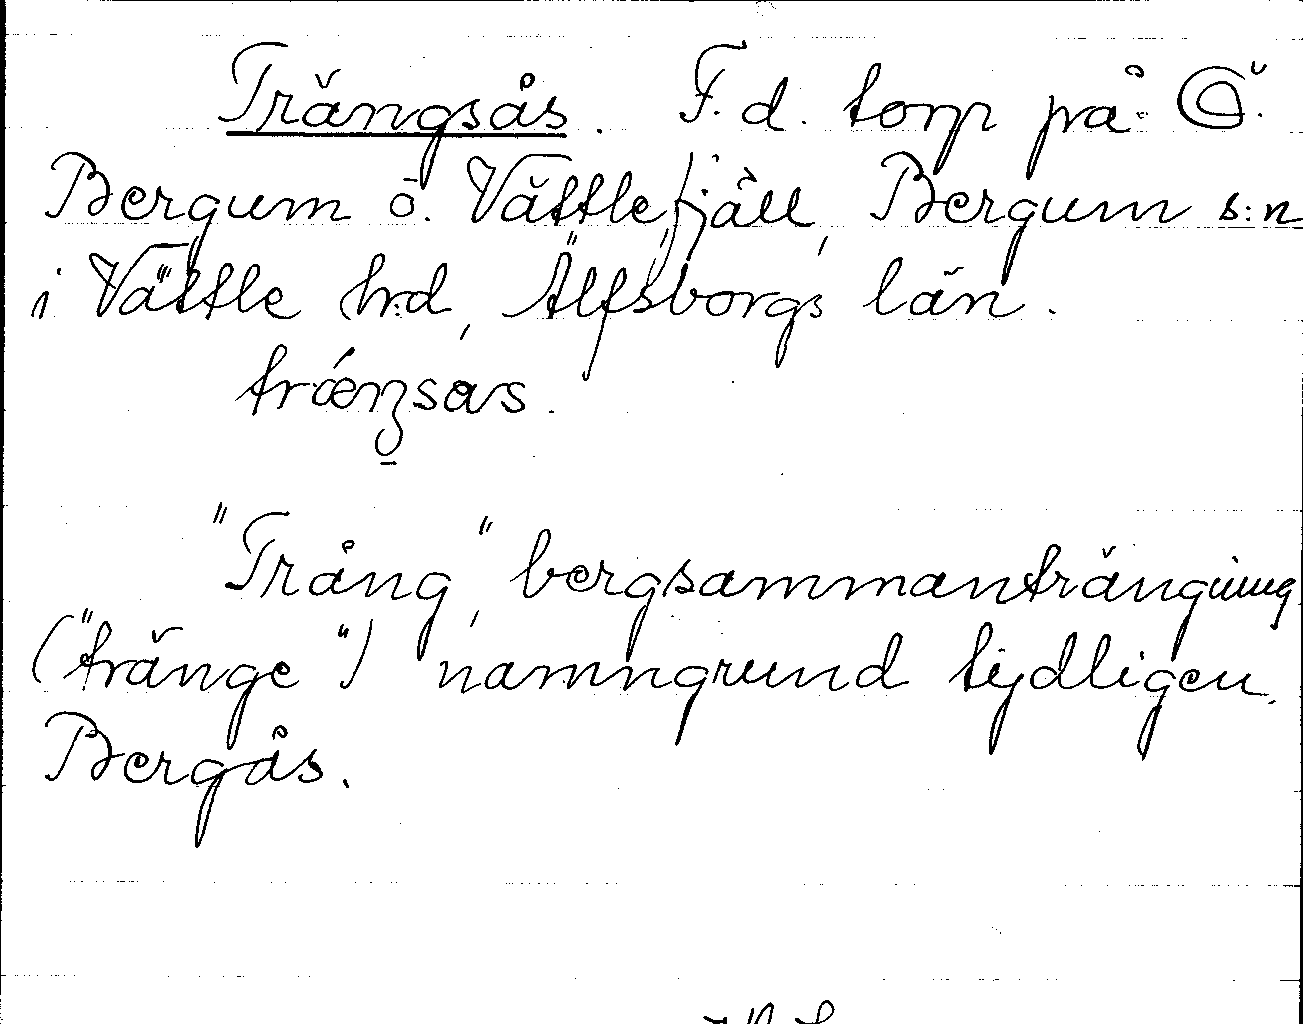 Trängsås. F.d. torp på Ö.
Bergum ö. Vättlefjäll, Bergum s:n
i Vättle hd, Älfsborgs län.
trǽŋsas.
"Trång", bergsammanträngning
("tränge") namngrund tydligen.
Bergås.